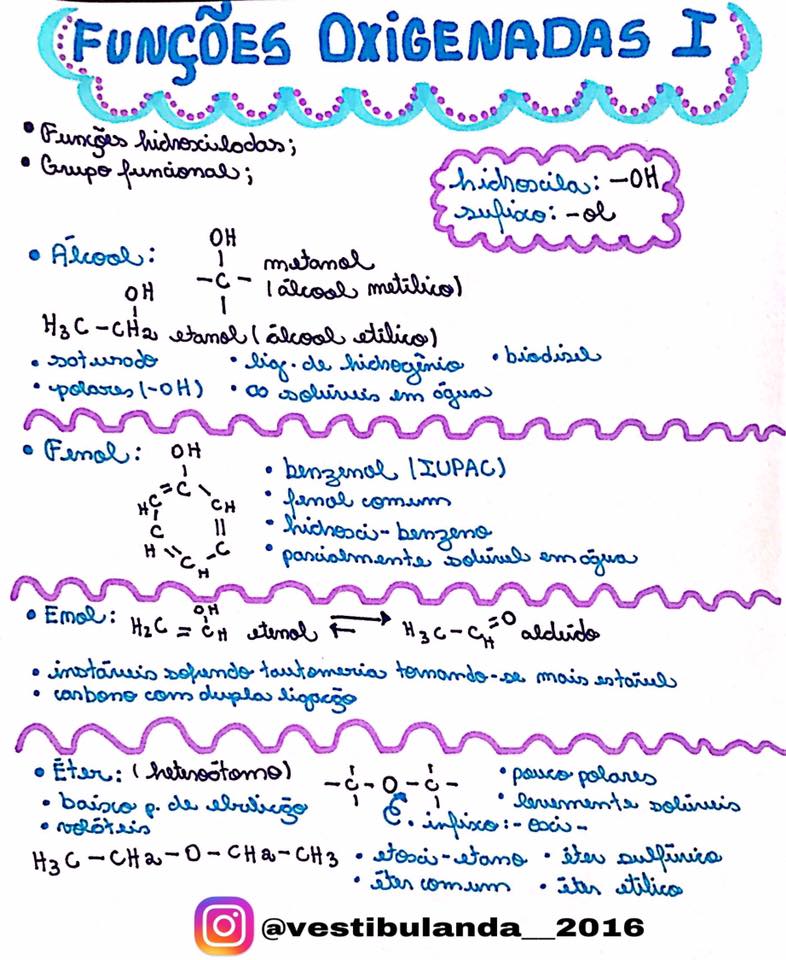 FUNÇÕES OXIGENADAS I
• Funções hidroxiladas;
• Grupo funcional;
hidroxila: -OH
sufixo: -ol
• Álcool:
OH
- C -
metanol
(álcool metílico)
OH
H3C - CH2 etanol (álcool etílico)
• saturado • lig. de hidrogênio • biodisel
• polares (-OH) • os solúveis em água
• Fenol:
OH
C = C
H
CH
C
H
C
C
H
• benzenol (IUPAC)
• fenol comum
• hidroxi-benzeno
• parcialmente solúvel em água
• Enol:
OH
H2C = CH etenol ⇌ H3C - CH = O aldeído
• instáveis sofrendo tautomeria tornando-se mais estável
• carbono com dupla ligação
• Éter: (heteroátomo)
- C - O - C -
• pouco polares
• baixo p. de ebulição
• levemente solúveis
• voláteis
• infixo: - oxi -
H3C - CH2 - O - CH2 - CH3
• etoxi-etano • éter sulfúrico
• éter comum • éter etílico
@vestibulanda__2016